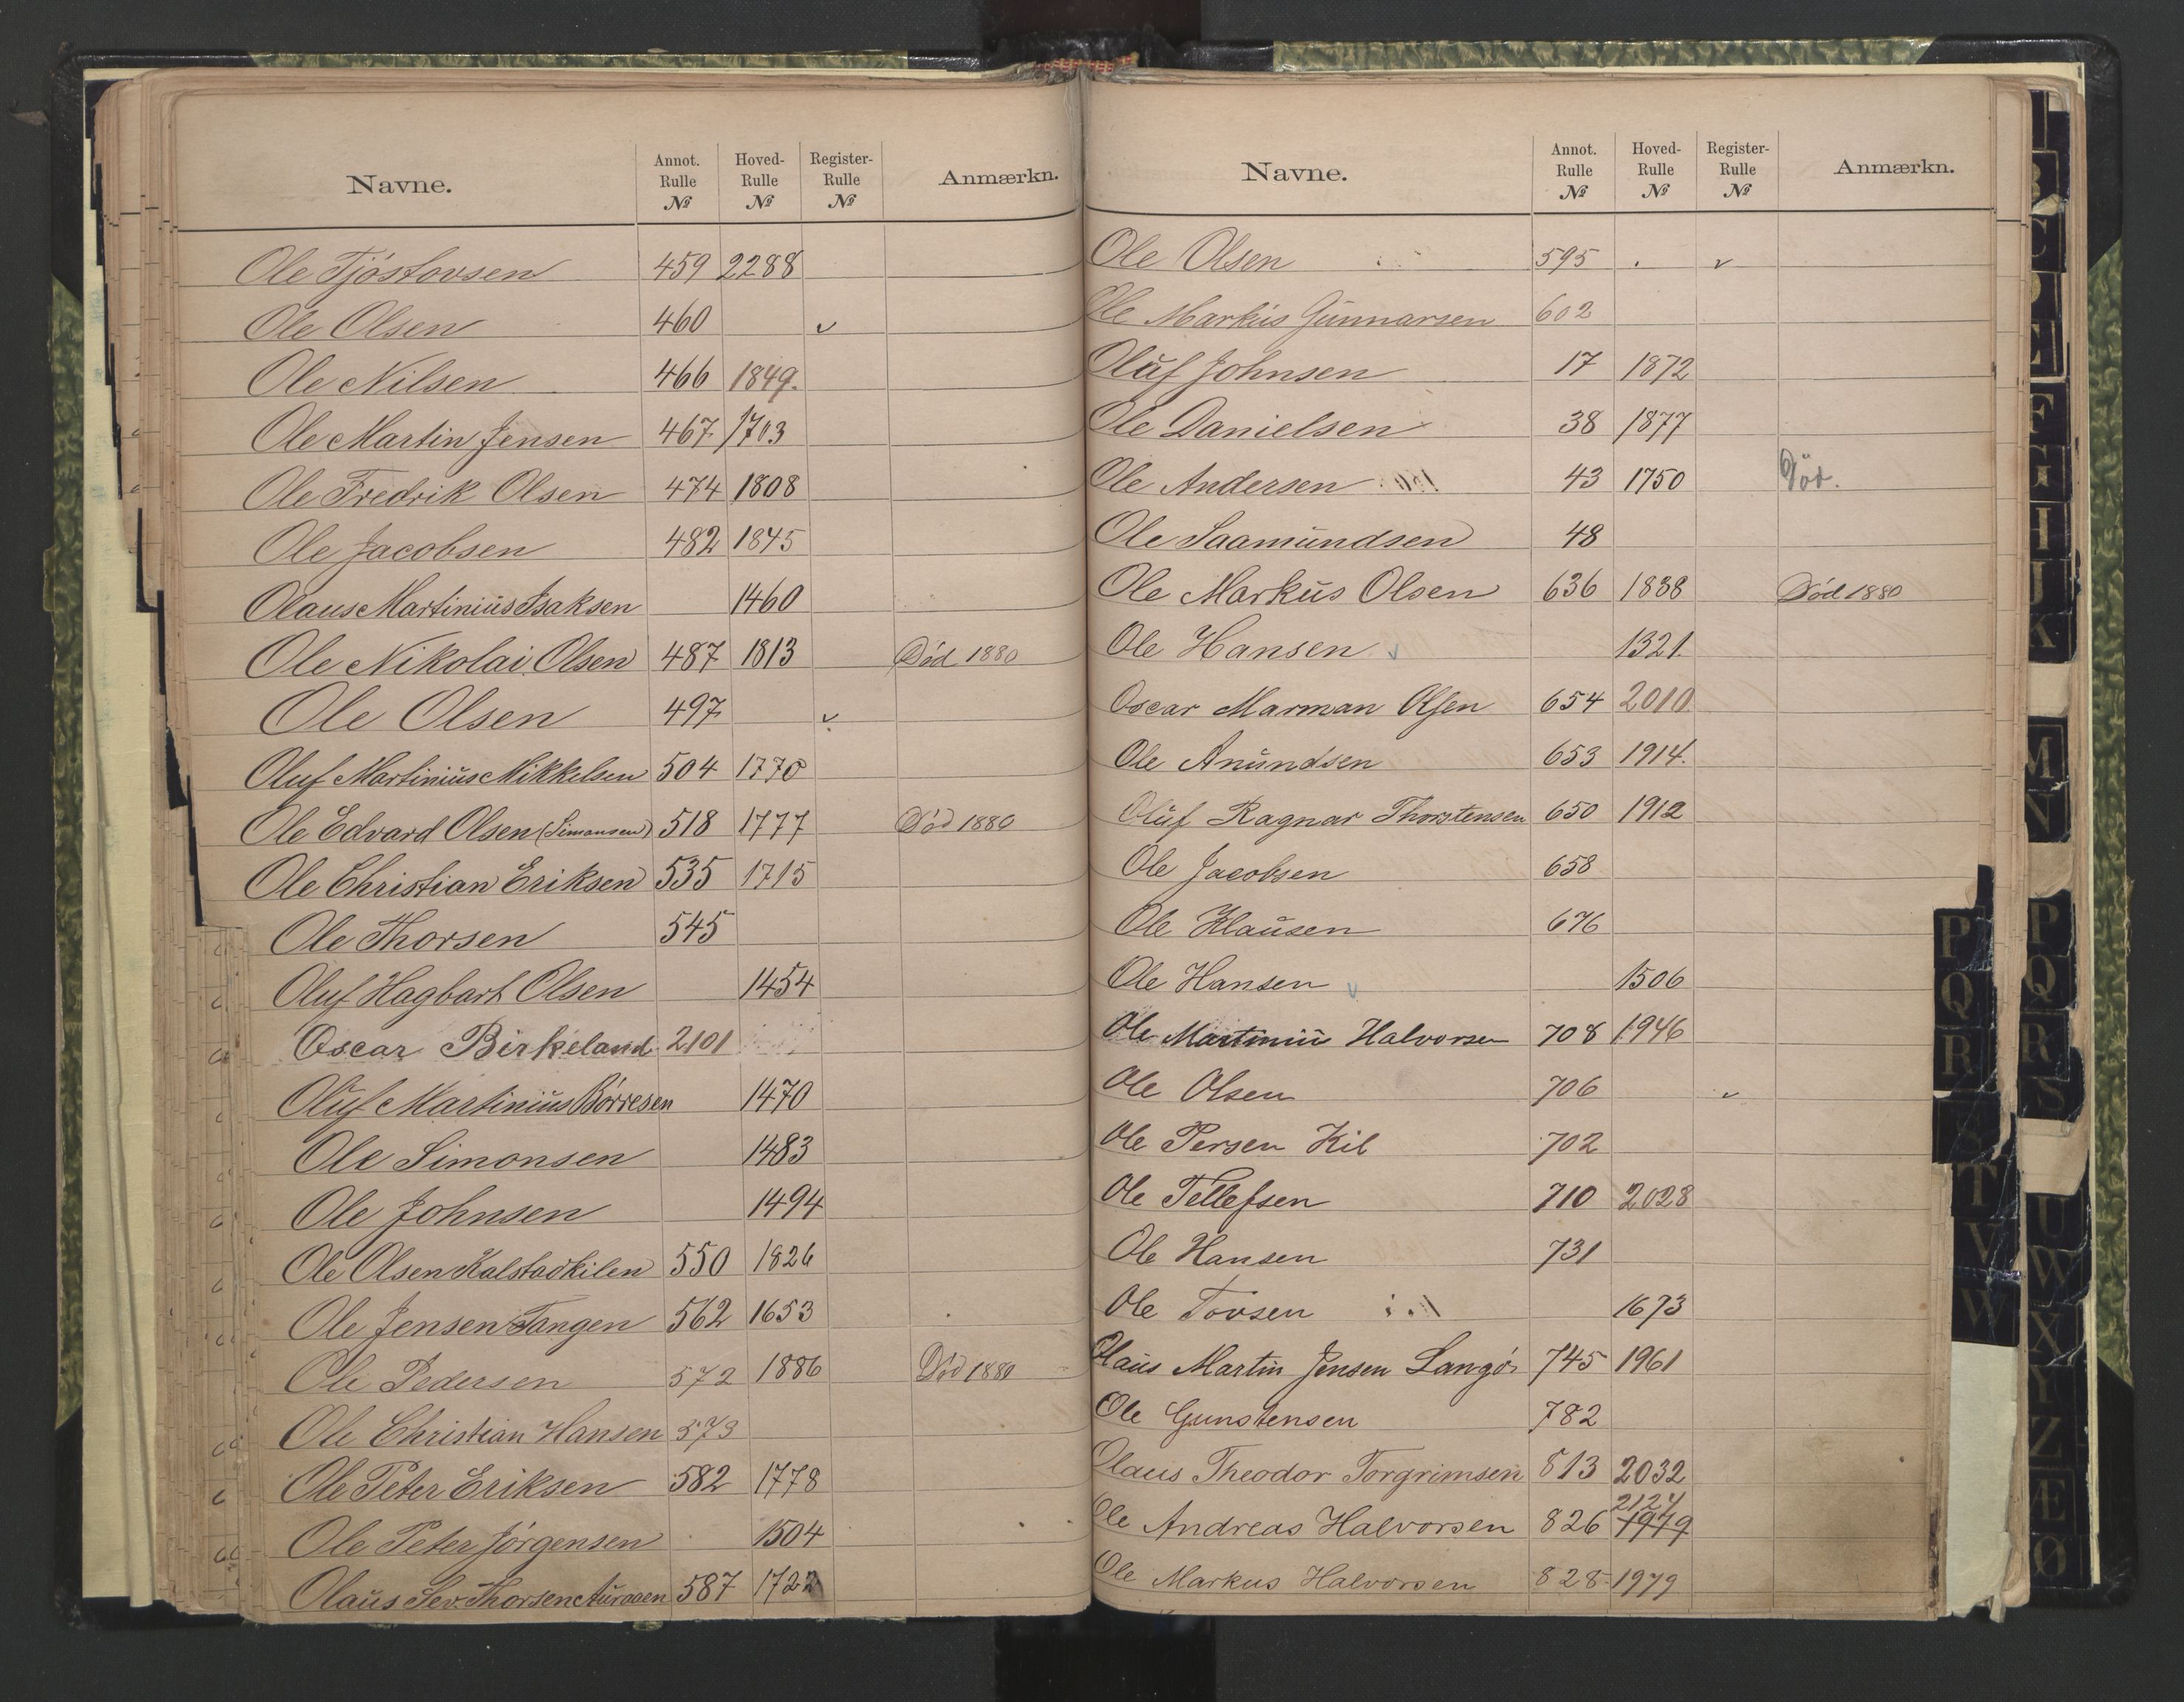 Navne. Annot. Rulle № Hoved-Rulle № Register-Rulle № Anmærkn.
Ole Tjöstovsen 459 2288
Ole Olsen 460 v
Ole Nilsen 466 1849.
Ole Martin Jensen 467 1703
Ole Fredrik Olsen 474 1808
Ole Jacobsen 482 1845
Olaus Martinius Isaksen 1460
Ole Nikolai Olsen 487 1813 Död 1880
Ole Olsen 497 v
Oluf Martinius Mikkelsen 504 1770
Ole Edvard Olsen (Simonsen) 518 1777 Död 1880
Ole Christian Eriksen 535 1715
Ole Thorsen 545
Oluf Hagbart Olsen 1454
Oscar Birkeland 2101
Oluf Martinius Börresen 1470
Ole Simonsen 1483
Ole Johnsen 1494
Ole Olsen Kalstadkilen 550 1826
Ole Jensen Tangen 562 1653
Ole Pedersen 572 1886 Död 1880
Ole Christian Hansen 573
Ole Peter Eriksen 582 1778
Ole Peter Jörgensen 1504
Olaus Sev. Thorsen 587 1722
Navne. Annot. Rulle № Hoved-Rulle № Register-Rulle № Anmærkn.
Ole Olsen 595 v
Ole Markus Gunnarsen 602
Oluf Johnsen 17 1872
Ole Danielsen 38 1877
Ole Andersen 43 1750 Död.
Ole Saamundsen 48
Ole Markus Olsen 636 1838 Död 1880
Ole Hansen v 1321.
Oscar Marman Olsen 654 2010
Ole Anundsen 653 1914.
Oluf Ragnar Thorstensen 650 1912
Ole Jacobsen 658
Ole Klausen 676
Ole Hansen v 1506
Ole Martiniu Halvorsen 708 1946
Ole Olsen 706 v
Ole Persen Kil 702
Ole Tellefsen 710 2028
Ole Hansen 731
Ole Tovsen 1673
Olaus Martin Jensen Langör 745 1961
Ole Gunstensen 782
Olaus Theodor Torgrimsen 813 2032
2124
Ole Andreas Halvorsen 826 1979
Ole Markus Halvorsen 828 1979
P
Q
R
S
T
V
W
C
E
F
G
H
J
K
M
N
P
Q
R
S
U
W
X
Y
Z
Æ
Ø